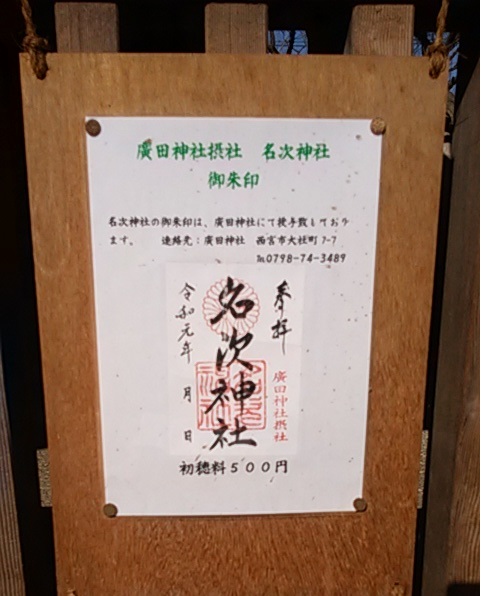 廣田神社摂社　名次神社
御朱印
名次神社の御朱印は、廣田神社にて授与致しており
ます。　連絡先：廣田神社　西宮市大社町7-7
℡0798-74-3489
奉拝
廣田神社摂社
名次神社
令和元年　月　日
初穂料５００円